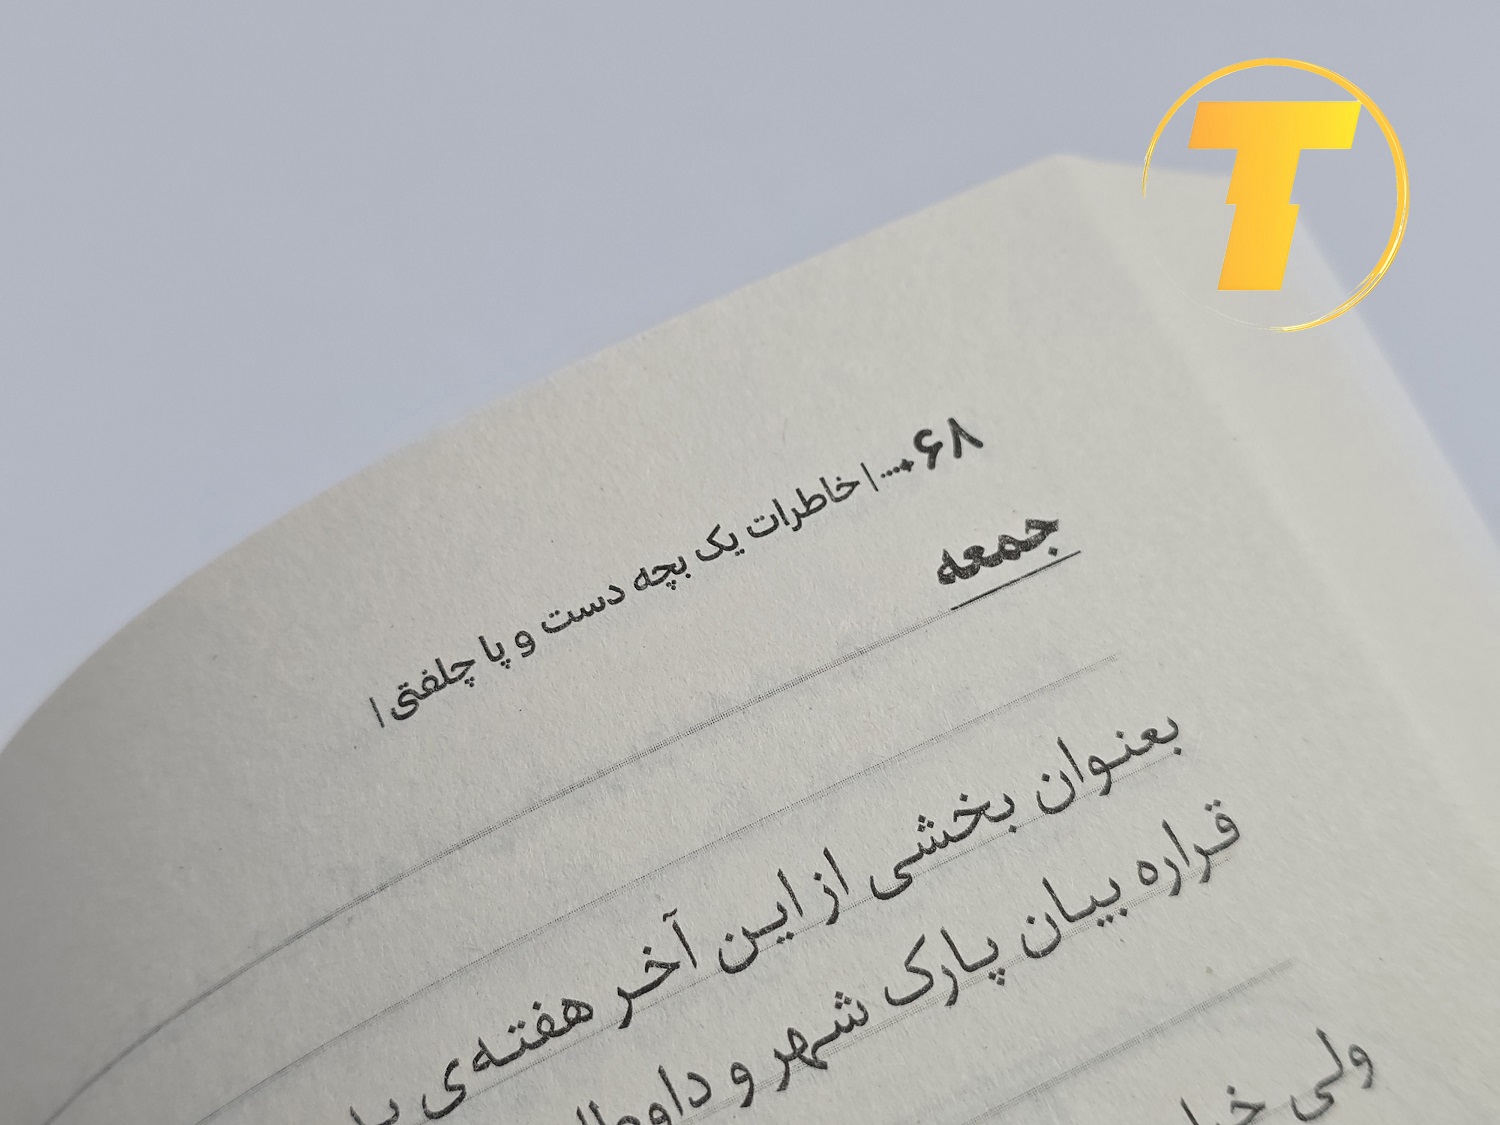 T
۶۸ | خاطرات یک بچه دست و پا چلفتی |
جمعه
بعنوان بخشی از این آخر هفته‌ی
قراره بیان پارک شهر و
ولی